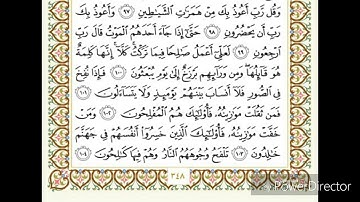 وَقُل رَّبِّ أَعُوذُ بِكَ مِنْ هَمَزَاتِ الشَّيَاطِينِ ٩٧ وَأَعُوذُ بِكَ
رَبِّ أَن يَحْضُرُونِ ٩٨ حَتَّىٰ إِذَا جَاءَ أَحَدَهُمُ الْمَوْتُ قَالَ رَبِّ
ارْجِعُونِ ٩٩ لَعَلِّي أَعْمَلُ صَالِحًا فِيمَا تَرَكْتُ كَلَّا إِنَّهَا كَلِمَةٌ
هُوَ قَائِلُهَا وَمِن وَرَائِهِم بَرْزَخٌ إِلَىٰ يَوْمِ يُبْعَثُونَ ١٠٠ فَإِذَا نُفِخَ
فِي الصُّورِ فَلَا أَنسَابَ بَيْنَهُمْ يَوْمَئِذٍ وَلَا يَتَسَاءَلُونَ ١٠١
فَمَن ثَقُلَتْ مَوَازِينُهُ فَأُولَٰئِكَ هُمُ الْمُفْلِحُونَ ١٠٢ وَمَنْ
خَفَّتْ مَوَازِينُهُ فَأُولَٰئِكَ الَّذِينَ خَسِرُوا أَنفُسَهُمْ فِي جَهَنَّمَ
خَالِدُونَ ١٠٣ تَلْفَحُ وُجُوهَهُمُ النَّارُ وَهُمْ فِيهَا كَالِحُونَ ١٠٤
٣٤٨
PowerDirector